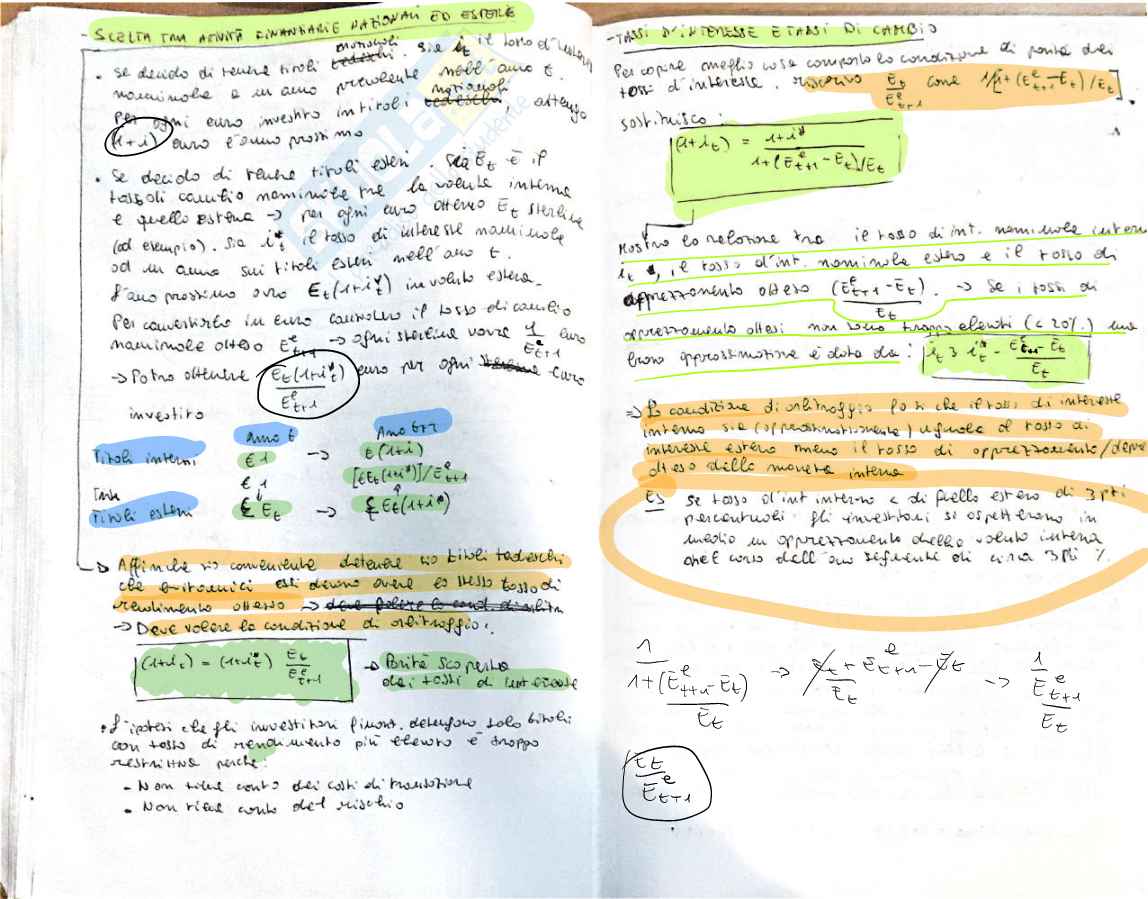 - SCELTA TRA ATTIVITÀ FINANZIARIE NAZIONALI ED ESTERE
• Se decido di tenere titoli nazionali. Sia it il tasso d'interesse
nominale a un anno prevalente nell'anno t.
Per ogni euro investito in titoli nazionali, ottengo
(1+i) euro l'anno prossimo
• Se decido di tenere titoli esteri. Sia Et è il
tasso di cambio nominale tra la valuta interna
e quello estera → per ogni euro ottengo Et sterline
(ad esempio). Sia i*t il tasso di interesse nominale
ad un anno sui titoli esteri nell'anno t.
L'anno prossimo avrò Et(1+i*t) in valuta estera.
Per convertirlo in euro considero il tasso di cambio
nominale atteso E^e t+1 → ogni sterlina varrà 1/E^e t+1 euro
→ Potrò ottenere Et(1+i*t)/E^e t+1 euro per ogni euro
investito
Anno t Anno t+1
Titoli interni €1 → €(1+i)
€1 [€Et(1+i*)]/E^e t+1
Titoli esteri £ Et → £ Et(1+i*)
Affinché sia conveniente detenere sia titoli tedeschi
che britannici essi devono avere lo stesso tasso di
rendimento atteso → deve valere la cond. di arbitr
→ Deve valere la condizione di arbitraggio.
(1+it) = (1+i*t) Et/E^e t+1 → Parità scoperta
dei tassi di interesse
• L'ipotesi che gli investitori finanz. detengano solo titoli
con tasso di rendimento più elevato è troppo
restrittiva perché:
- Non tiene conto dei costi di transazione
- Non tiene conto del rischio
- TASSI D'INTERESSE E TASSI DI CAMBIO
Per capire meglio cosa comporta la condizione di parità dei
tassi d'interesse, riscrivo Et/E^e t+1 come 1/[1+(E^e t+1-Et)/Et]
sostituisco:
(1+it) = 1+i*t / 1+(E^e t+1 - Et)/Et
Mostra la relazione tra il tasso di int. nominale interno
it, il tasso d'int. nominale estero e il tasso di
apprezzamento atteso (E^e t+1 - Et)/Et. → Se i tassi di
apprezzamento attesi non sono troppo elevati (< 20%) una
buona approssimazione è data da: it ≈ i*t - E^e t+1 - Et/Et
⇒ La condizione di arbitraggio fa sì che il tasso di interesse
interno sia (approssimativamente) uguale al tasso di
interesse estero meno il tasso di apprezzamento/depr
atteso della moneta interna
ES Se tasso d'int interno < di quello estero di 3 pti
percentuali gli investitori si aspetteranno in
medio un apprezzamento della valuta interna
nel corso dell'anno seguente di circa 3 pti %.
1/1+(E^e t+1 - Et)/Et → Et + E^e t+1 - Et/Et → 1/E^e t+1/Et
Et/E^e t+1